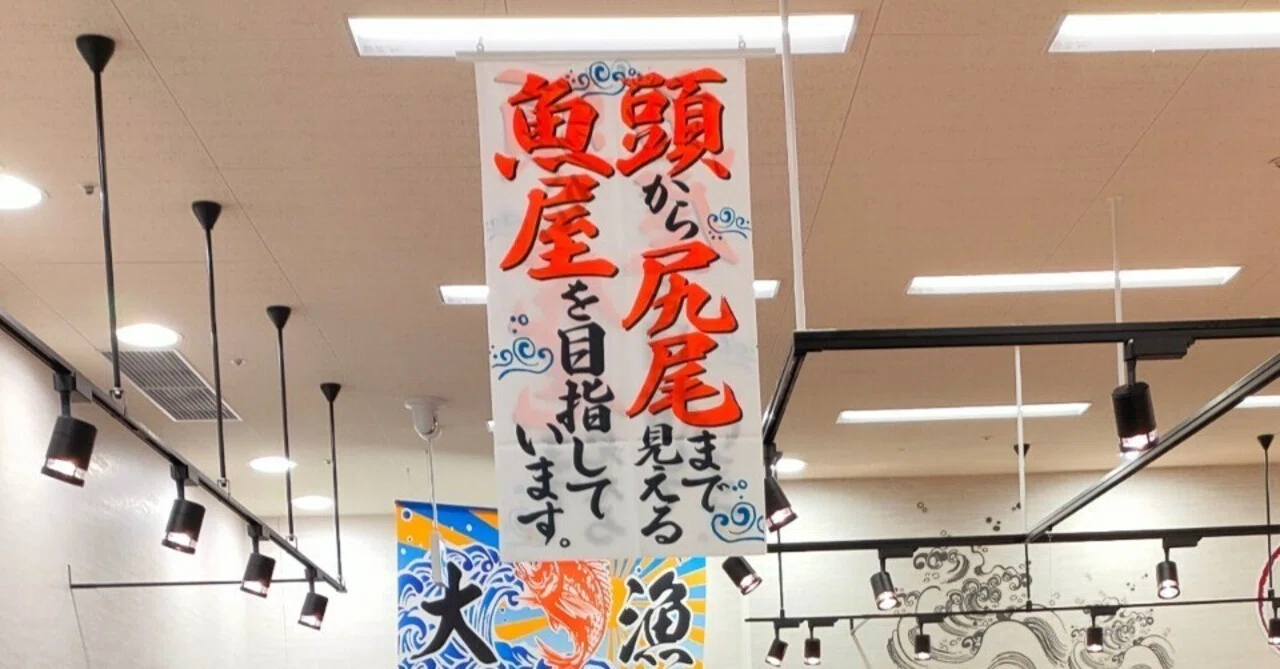 頭から尻尾まで
見える
魚屋を目指して
います。
大漁